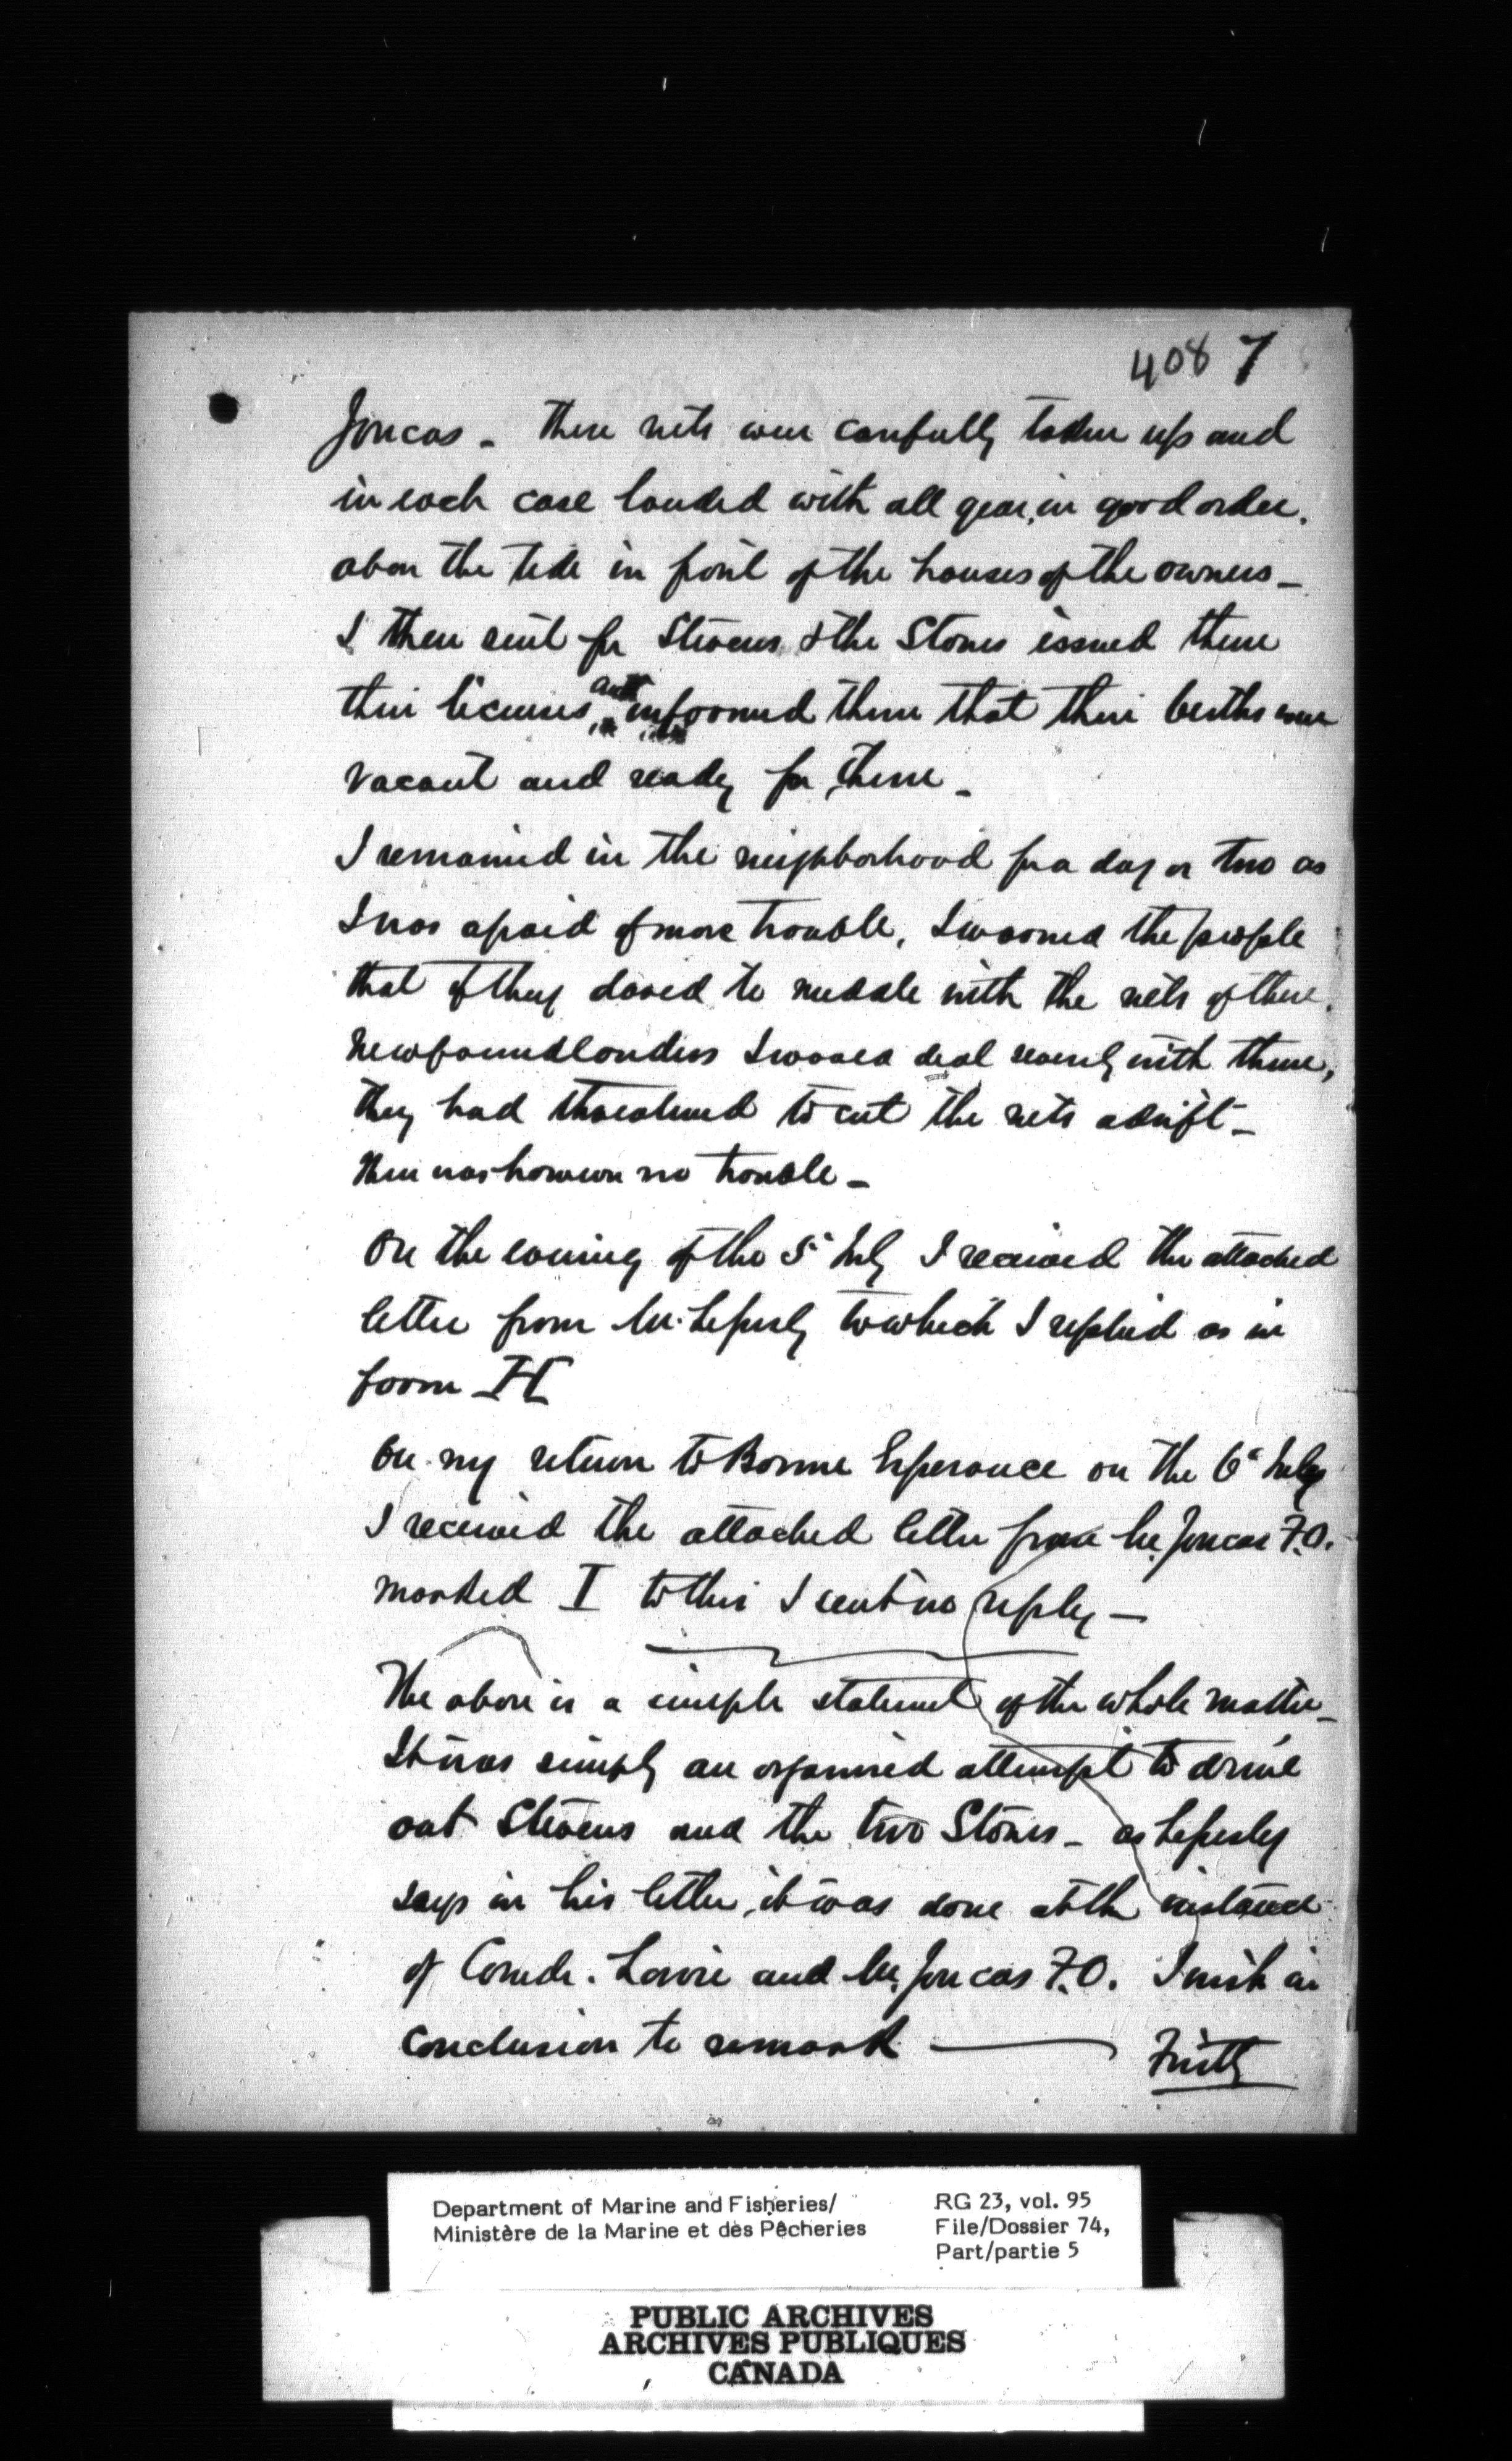 408 7
Joncas – These nets were carefully taken up and
in each case landed with all gear, in good order,
above the tide in front of the houses of the owners –
I then sent for Stevens & the Stones issued them
their licenses, and informed them that their berths were
vacant and ready for them –
I remained in the neighborhood for a day or two as
I was afraid of more trouble, I warned the people
that if they dared to meddle with the nets of these
Newfoundlanders I would deal severely with them,
they had threatened to cut the nets adrift –
there was however no trouble –
On the evening of the 5th July I received the attached
letter from Mr. to which I replied as in
form H
On my return to Bonne Esperance on the 6th July
I received the attached letter from Mr. Joncas F.O.
marked I to this I sent no reply –
The above is a simple statement of the whole matter –
It was simply an organised attempt to drive
out Stevens and the two Stones – as
says in his letter, it was done at the
of Comdr. and Mr. Joncas F.O. I wish in
conclusion to remark ——
Department of Marine and Fisheries/
Ministère de la Marine et des Pêcheries
RG 23, vol. 95
File/Dossier 74,
Part/partie 5
PUBLIC ARCHIVES
ARCHIVES PUBLIQUES
CANADA